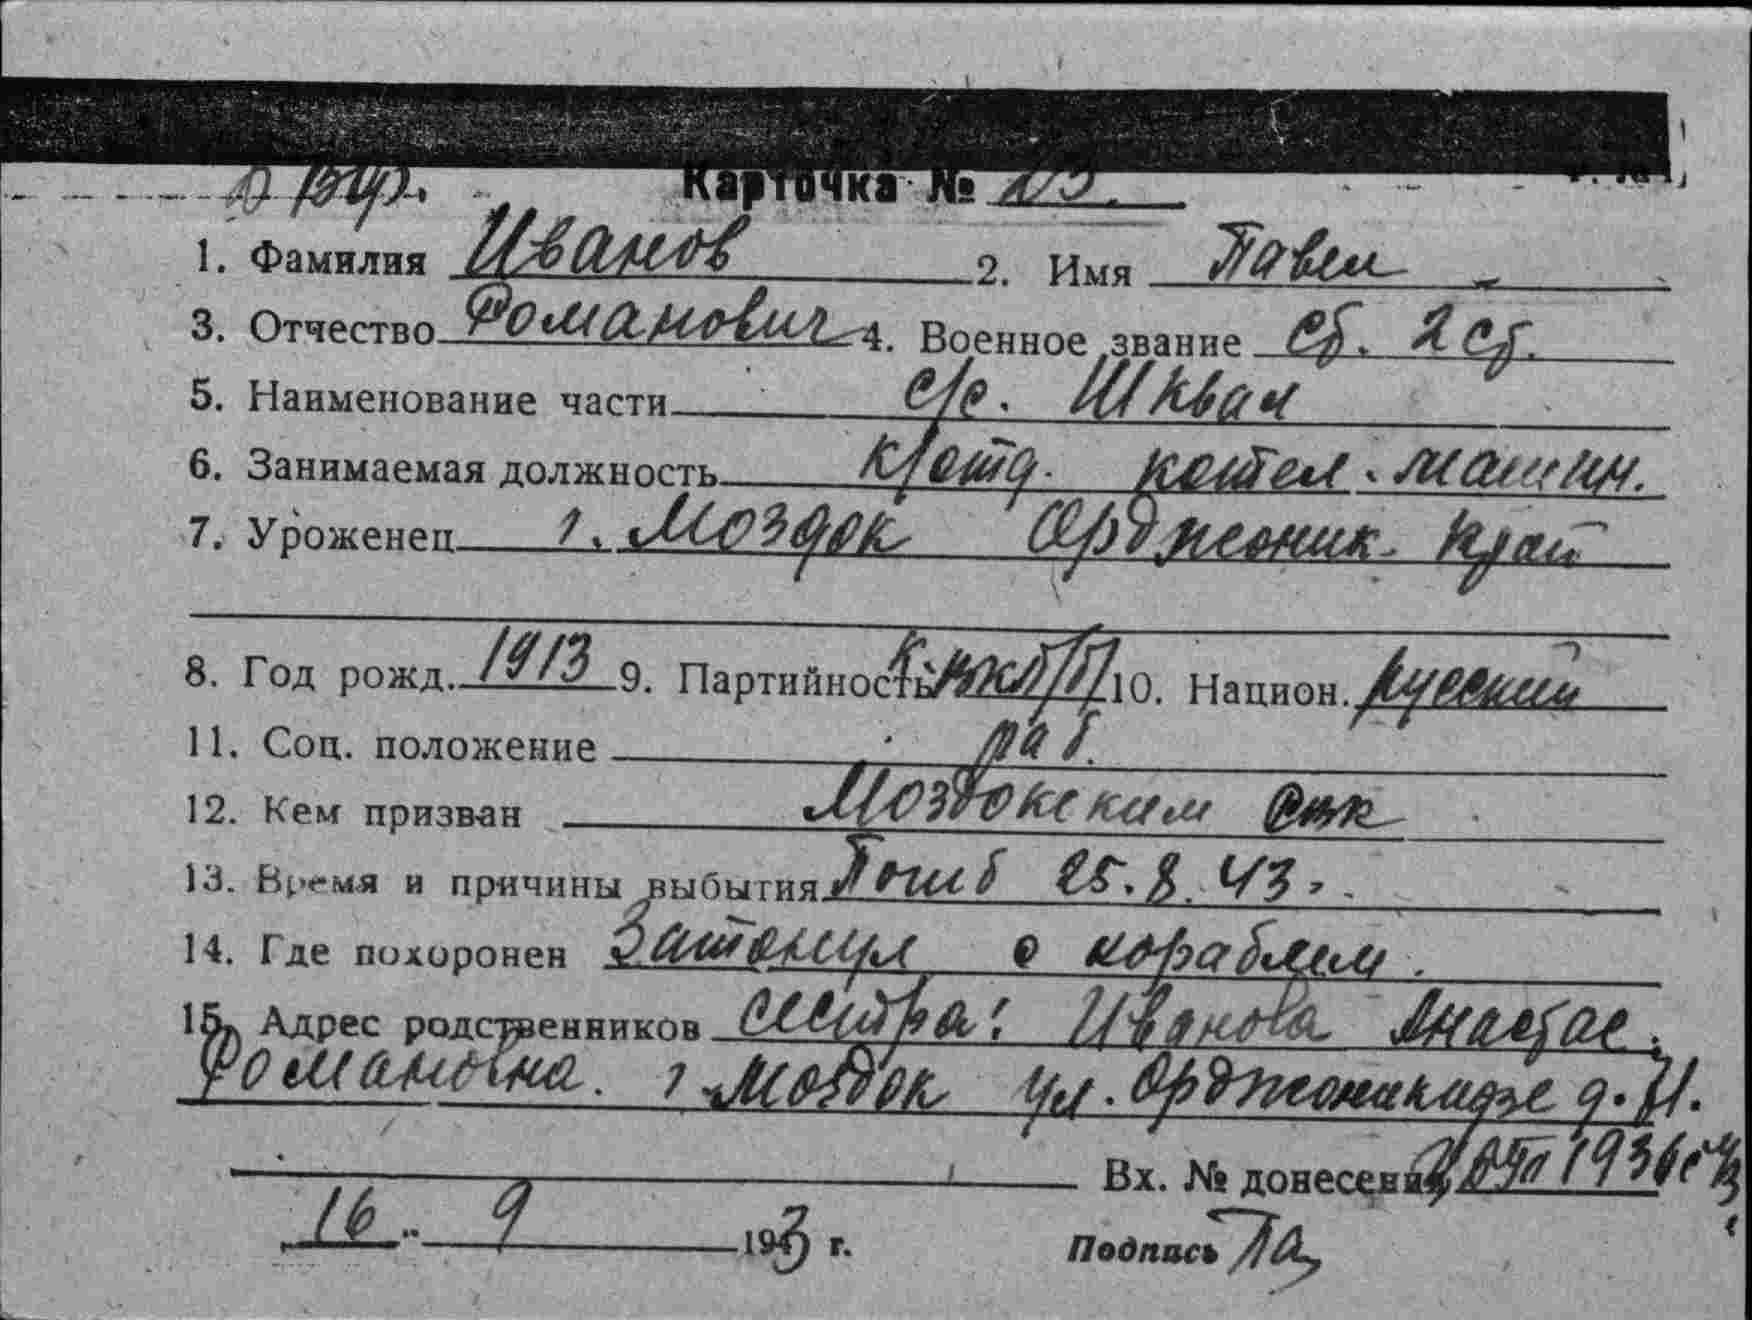 Карточка №
1. Фамилия Иванов 2. Имя Павел
3. Отчество Романович 4. Военное звание 2 ст.
5. Наименование части с/с. Шквал
6. Занимаемая должность к/отд. котел. машин.
7. Уроженец г. Моздок Орджоник. край
8. Год рожд. 1913 9. Партийность 10. Национ. русский
11. Соц. положение раб.
12. Кем призван Моздокским
13. Время и причины выбытия Погиб 25.8.43.
14. Где похоронен Затонул с кораблем.
15. Адрес родственников сестра: Иванова Анастас.
Романовна. г. Моздок ул. Орджоникидзе д.
Вх. № донесения
16. 9 1943 г. Подпись